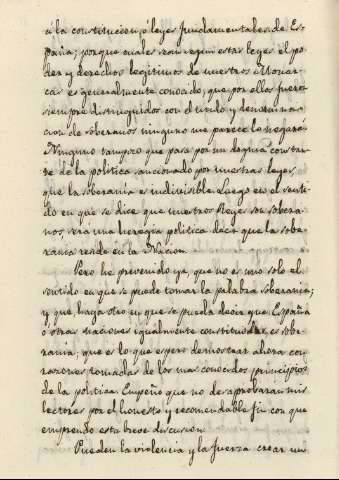 á la constitucion o leyes fundamentales de Es-
paña; porque cuales sean segun estas leyes el po-
der y derechos legitimos de nuestros Monar-
cas es generalmente conocido, que por ellos fueron
siempre distinguidos con el titulo y denomina-
cion de soberanos ninguno me parece lo negará.
Ninguno tampoco que pasa por un dogma constan-
te de la politica sancionado por nuestras leyes,
que la soberanía es indivisible. Luego en el senti-
do en que se dice que nuestros Reyes son sobera-
nos será una heregia politica decir que la sobe-
ranía reside en la Nacion.
Pero he prevenido ya, que no es uno solo el
sentido en que se puede tomar la palabra soberanía;
y que hay otro en que se pueda decir que España
ú otras naciones igualmente constituidas es sobe-
rana; que es lo que espero demostrar ahora con
razones tomadas de los mas conocidos principios
de la politica. Empeño que no desaprobaran mis
lectores por el honesto y recomendable fin con que
emprendo esta breve discusion.
Pueden la violencia y la fuerza crear un